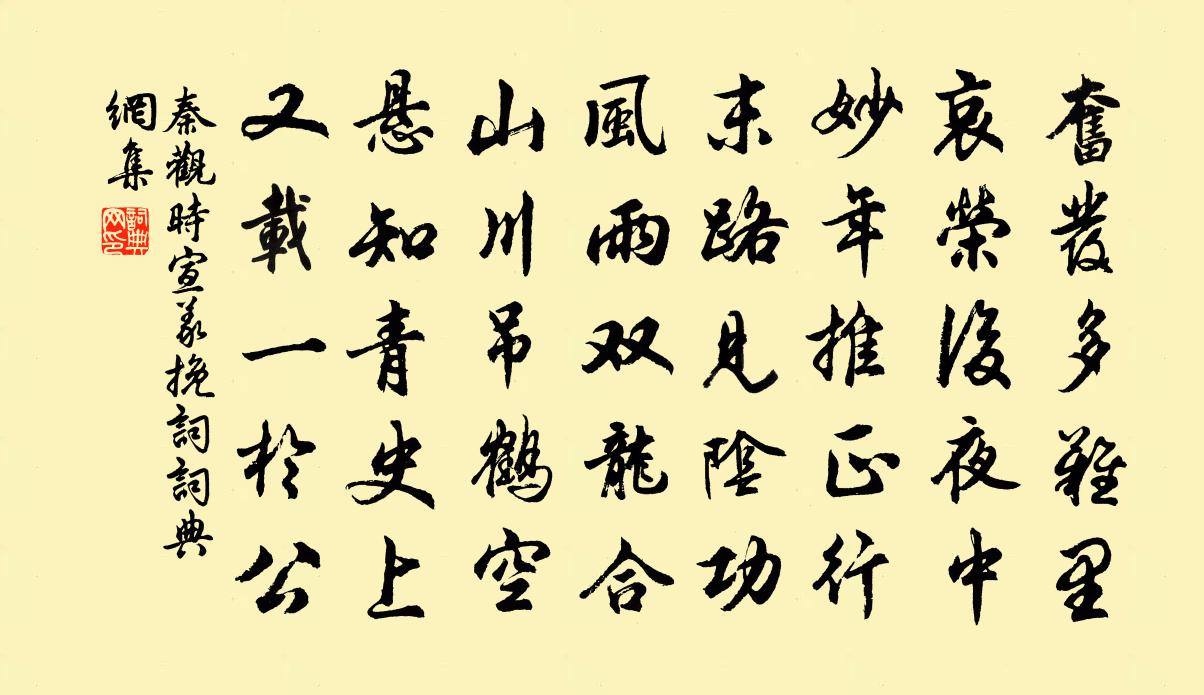 奮發多難里
哀榮後夜中
妙年推正行
末路見陰功
風雨双龍合
山川吊鶴空
悬知青史上
又載一於公
秦觀時宣義挽詞詞典
網集
詞典
网印